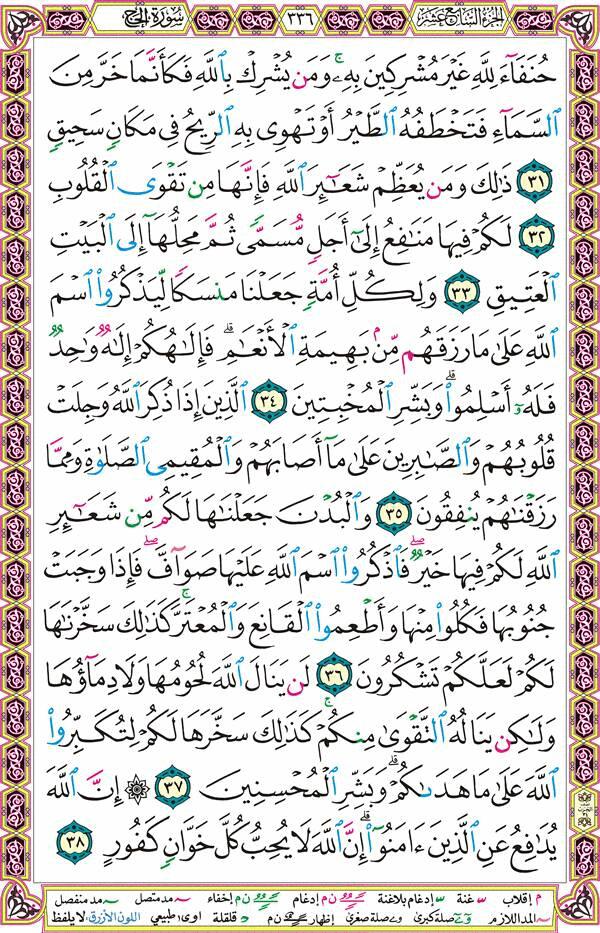 الجزء السابع عشر
٣٣٦
سورة الحج
حُنَفَآءَ لِلَّهِ غَيۡرَ مُشۡرِكِينَ بِهِۦۚ وَمَن يُشۡرِكۡ بِٱللَّهِ فَكَأَنَّمَا خَرَّ مِنَ
ٱلسَّمَآءِ فَتَخۡطَفُهُ ٱلطَّيۡرُ أَوۡ تَهۡوِي بِهِ ٱلرِّيحُ فِي مَكَانٖ سَحِيقٖ
٣١ ذَٰلِكَۖ وَمَن يُعَظِّمۡ شَعَٰٓئِرَ ٱللَّهِ فَإِنَّهَا مِن تَقۡوَى ٱلۡقُلُوبِ
٣٢ لَكُمۡ فِيهَا مَنَٰفِعُ إِلَىٰٓ أَجَلٖ مُّسَمّٗى ثُمَّ مَحِلُّهَآ إِلَى ٱلۡبَيۡتِ
ٱلۡعَتِيقِ ٣٣ وَلِكُلِّ أُمَّةٖ جَعَلۡنَا مَنسَكٗا لِّيَذۡكُرُواْ ٱسۡمَ
ٱللَّهِ عَلَىٰ مَا رَزَقَهُم مِّنۢ بَهِيمَةِ ٱلۡأَنۡعَٰمِۗ فَإِلَٰهُكُمۡ إِلَٰهٞ وَٰحِدٞ
فَلَهُۥٓ أَسۡلِمُواْۗ وَبَشِّرِ ٱلۡمُخۡبِتِينَ ٣٤ ٱلَّذِينَ إِذَا ذُكِرَ ٱللَّهُ وَجِلَتۡ
قُلُوبُهُمۡ وَٱلصَّٰبِرِينَ عَلَىٰ مَآ أَصَابَهُمۡ وَٱلۡمُقِيمِي ٱلصَّلَوٰةِ وَمِمَّا
رَزَقۡنَٰهُمۡ يُنفِقُونَ ٣٥ وَٱلۡبُدۡنَ جَعَلۡنَٰهَا لَكُم مِّن شَعَٰٓئِرِ
ٱللَّهِ لَكُمۡ فِيهَا خَيۡرٞۖ فَٱذۡكُرُواْ ٱسۡمَ ٱللَّهِ عَلَيۡهَا صَوَآفَّۖ فَإِذَا وَجَبَتۡ
جُنُوبُهَا فَكُلُواْ مِنۡهَا وَأَطۡعِمُواْ ٱلۡقَانِعَ وَٱلۡمُعۡتَرَّۚ كَذَٰلِكَ سَخَّرۡنَٰهَا
لَكُمۡ لَعَلَّكُمۡ تَشۡكُرُونَ ٣٦ لَن يَنَالَ ٱللَّهَ لُحُومُهَا وَلَا دِمَآؤُهَا
وَلَٰكِن يَنَالُهُ ٱلتَّقۡوَىٰ مِنكُمۡۚ كَذَٰلِكَ سَخَّرَهَا لَكُمۡ لِتُكَبِّرُواْ
ٱللَّهَ عَلَىٰ مَا هَدَىٰكُمۡۗ وَبَشِّرِ ٱلۡمُحۡسِنِينَ ٣٧ ۞ إِنَّ ٱللَّهَ
يُدَٰفِعُ عَنِ ٱلَّذِينَ ءَامَنُوٓاْۗ إِنَّ ٱللَّهَ لَا يُحِبُّ كُلَّ خَوَّانٖ كَفُورٍ ٣٨
م إقلاب غنة إدغام بلاغنة ن م إدغام ن م إخفاء مد متصل مد منفصل
المد اللازم صلة كبرى صلة صغرى إظهار ن م قلقلة اوى طبيعي اللون الأزرق لا يلفظ